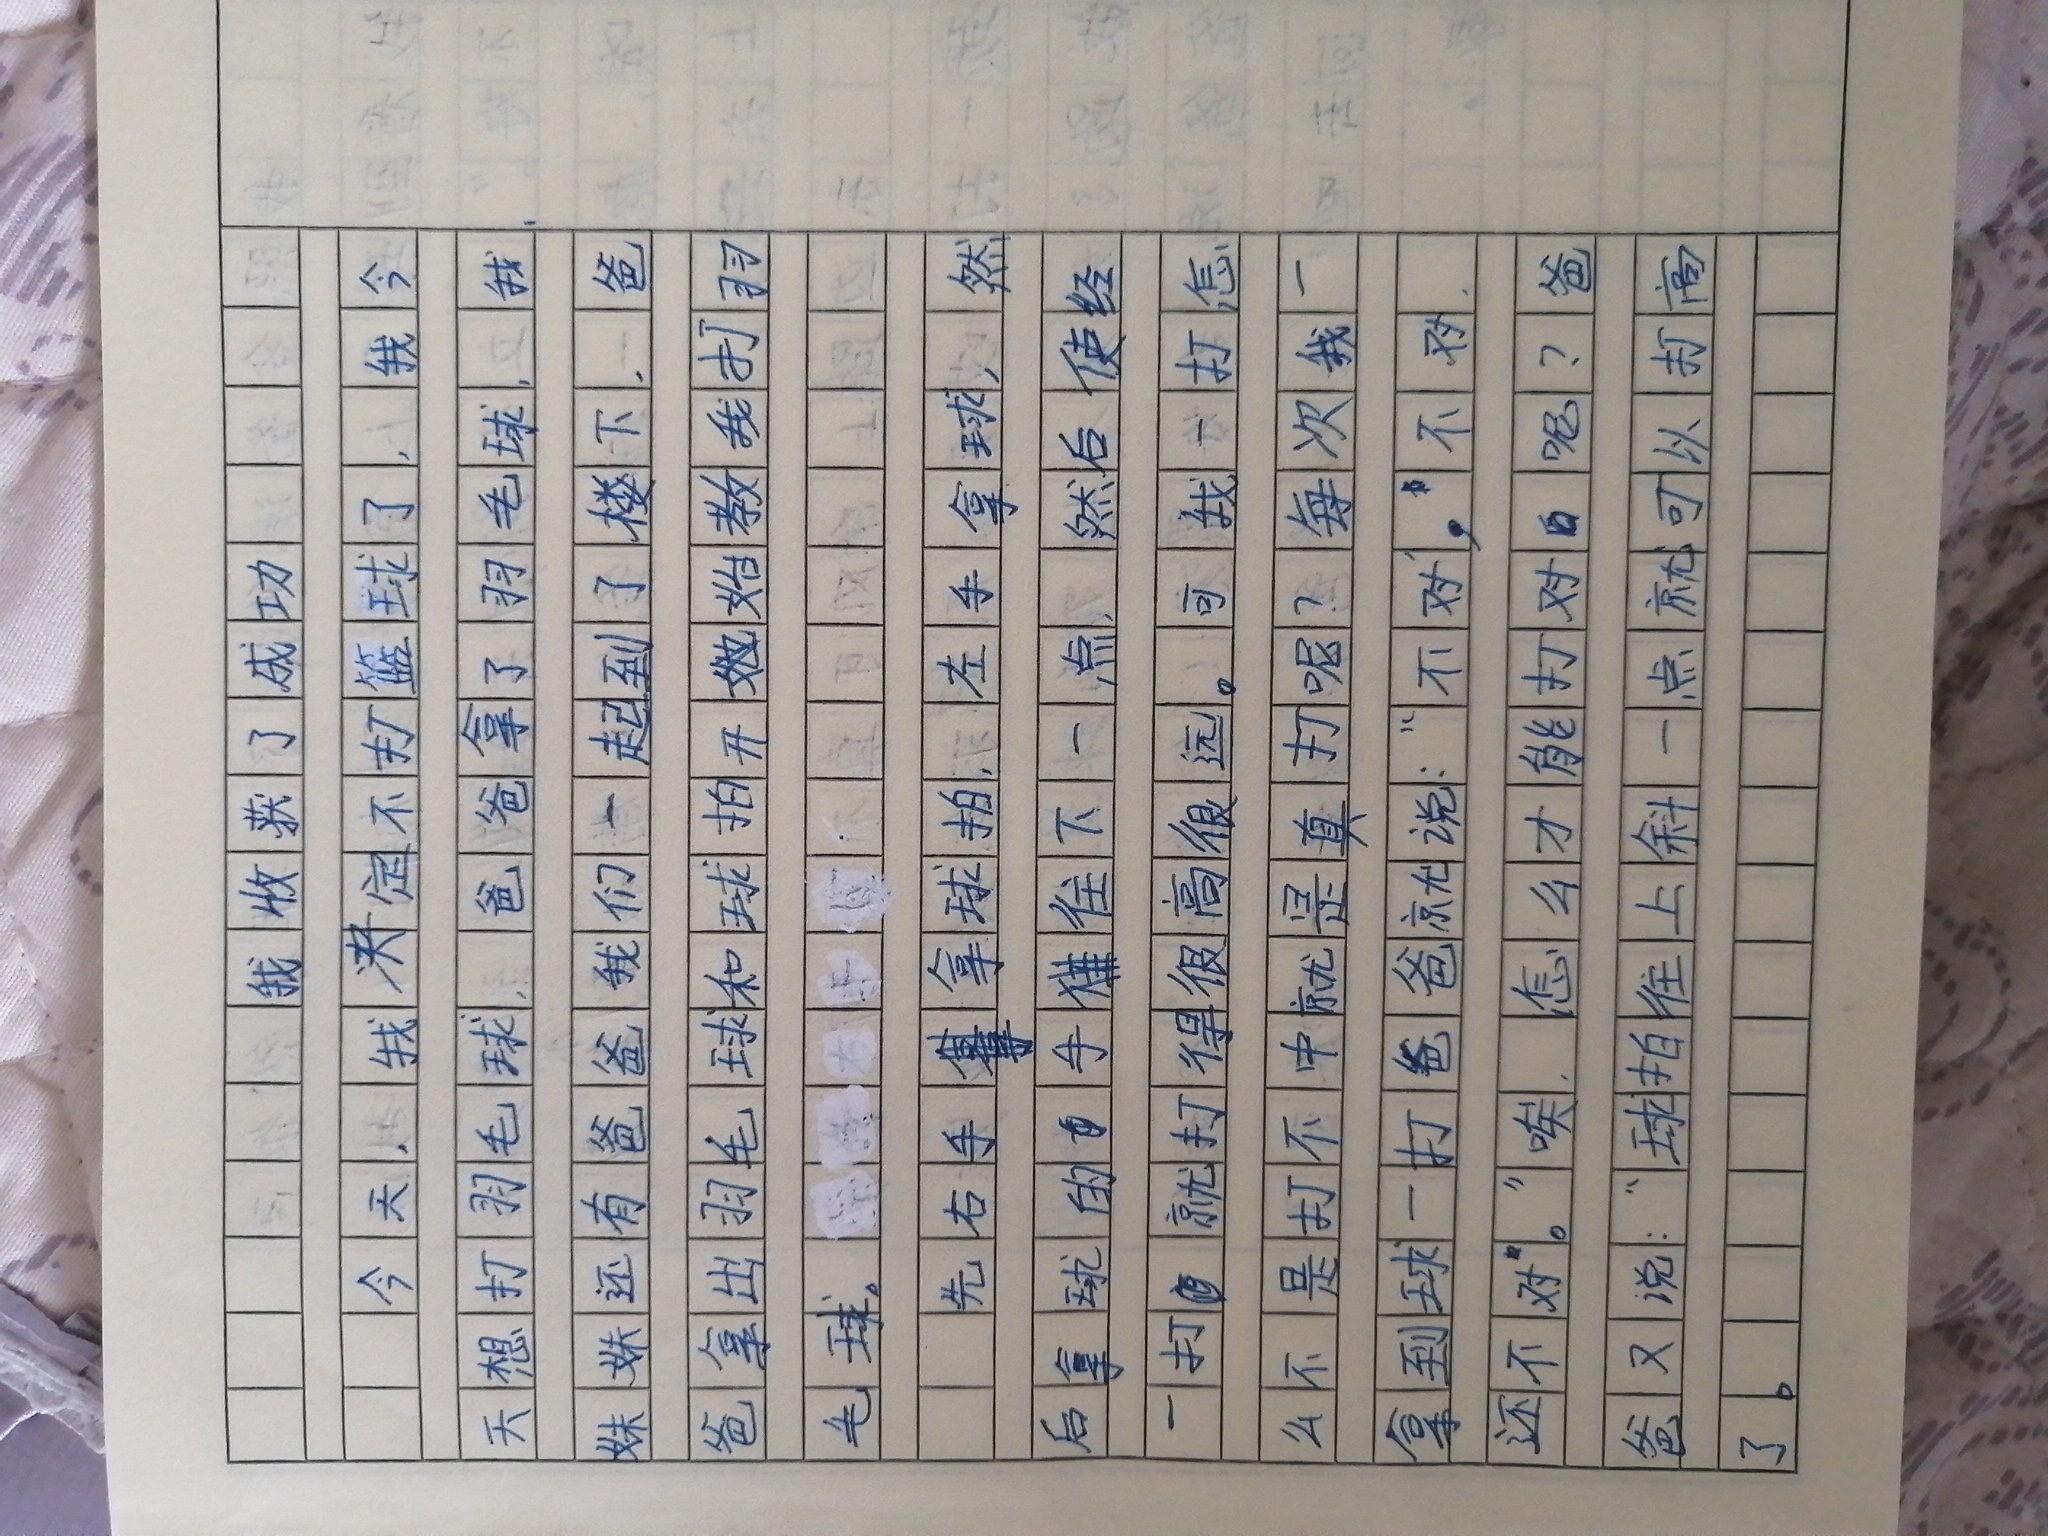 我收获了成功
今天，我决定不打篮球了，我今
天想打羽毛球，爸爸拿了羽毛球，我
妹妹还有爸爸我们一起到了楼下，爸
爸拿出羽毛球和球拍开始教我打羽
毛球。
先右手拿球拍，左手拿球，然
后拿球的手往下一点，然后使经
一打就打得很高很远。可我一打怎
么不是打不中就是真打呢？每次我一
拿到球一打爸爸就说：“不对”，“不对，
还不对”。”唉，怎么才能打对呢？爸
爸又说：“球拍往上斜一点就可以打高
了。